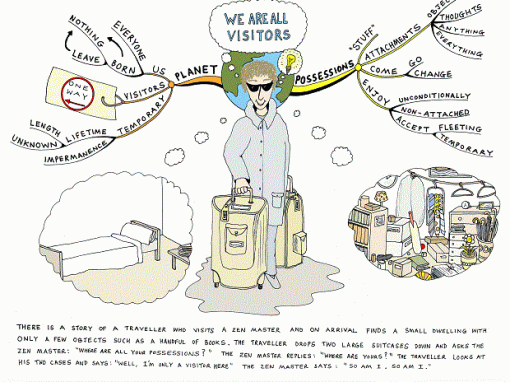 WE ARE ALL
VISITORS
NOTHING
EVERYONE
LEAVE
BORN
US
PLANET
VISITORS
ONE
WAY
TEMPORARY
LENGTH
UNKNOWN
LIFETIME
IMPERMANENCE
POSSESSIONS
"STUFF"
ATTACHMENTS
THOUGHTS
ANYTHING
EVERYTHING
COME
GO
CHANGE
ENJOY
UNCONDITIONALLY
NON-ATTACHED
ACCEPT
FLEETING
TEMPORARY
THERE IS A STORY OF A TRAVELLER WHO VISITS A ZEN MASTER AND ON ARRIVAL FINDS A SMALL DWELLING WITH
ONLY A FEW OBJECTS SUCH AS A HANDFUL OF BOOKS. THE TRAVELLER DROPS TWO LARGE SUITCASES DOWN AND ASKS THE
ZEN MASTER: "WHERE ARE ALL YOUR POSSESSIONS?" THE ZEN MASTER REPLIES: "WHERE ARE YOURS?" THE TRAVELLER LOOKS AT
HIS TWO CASES AND SAYS: "WELL, I'M ONLY A VISITOR HERE" THE ZEN MASTER SAYS: "SO AM I. SO AM I."